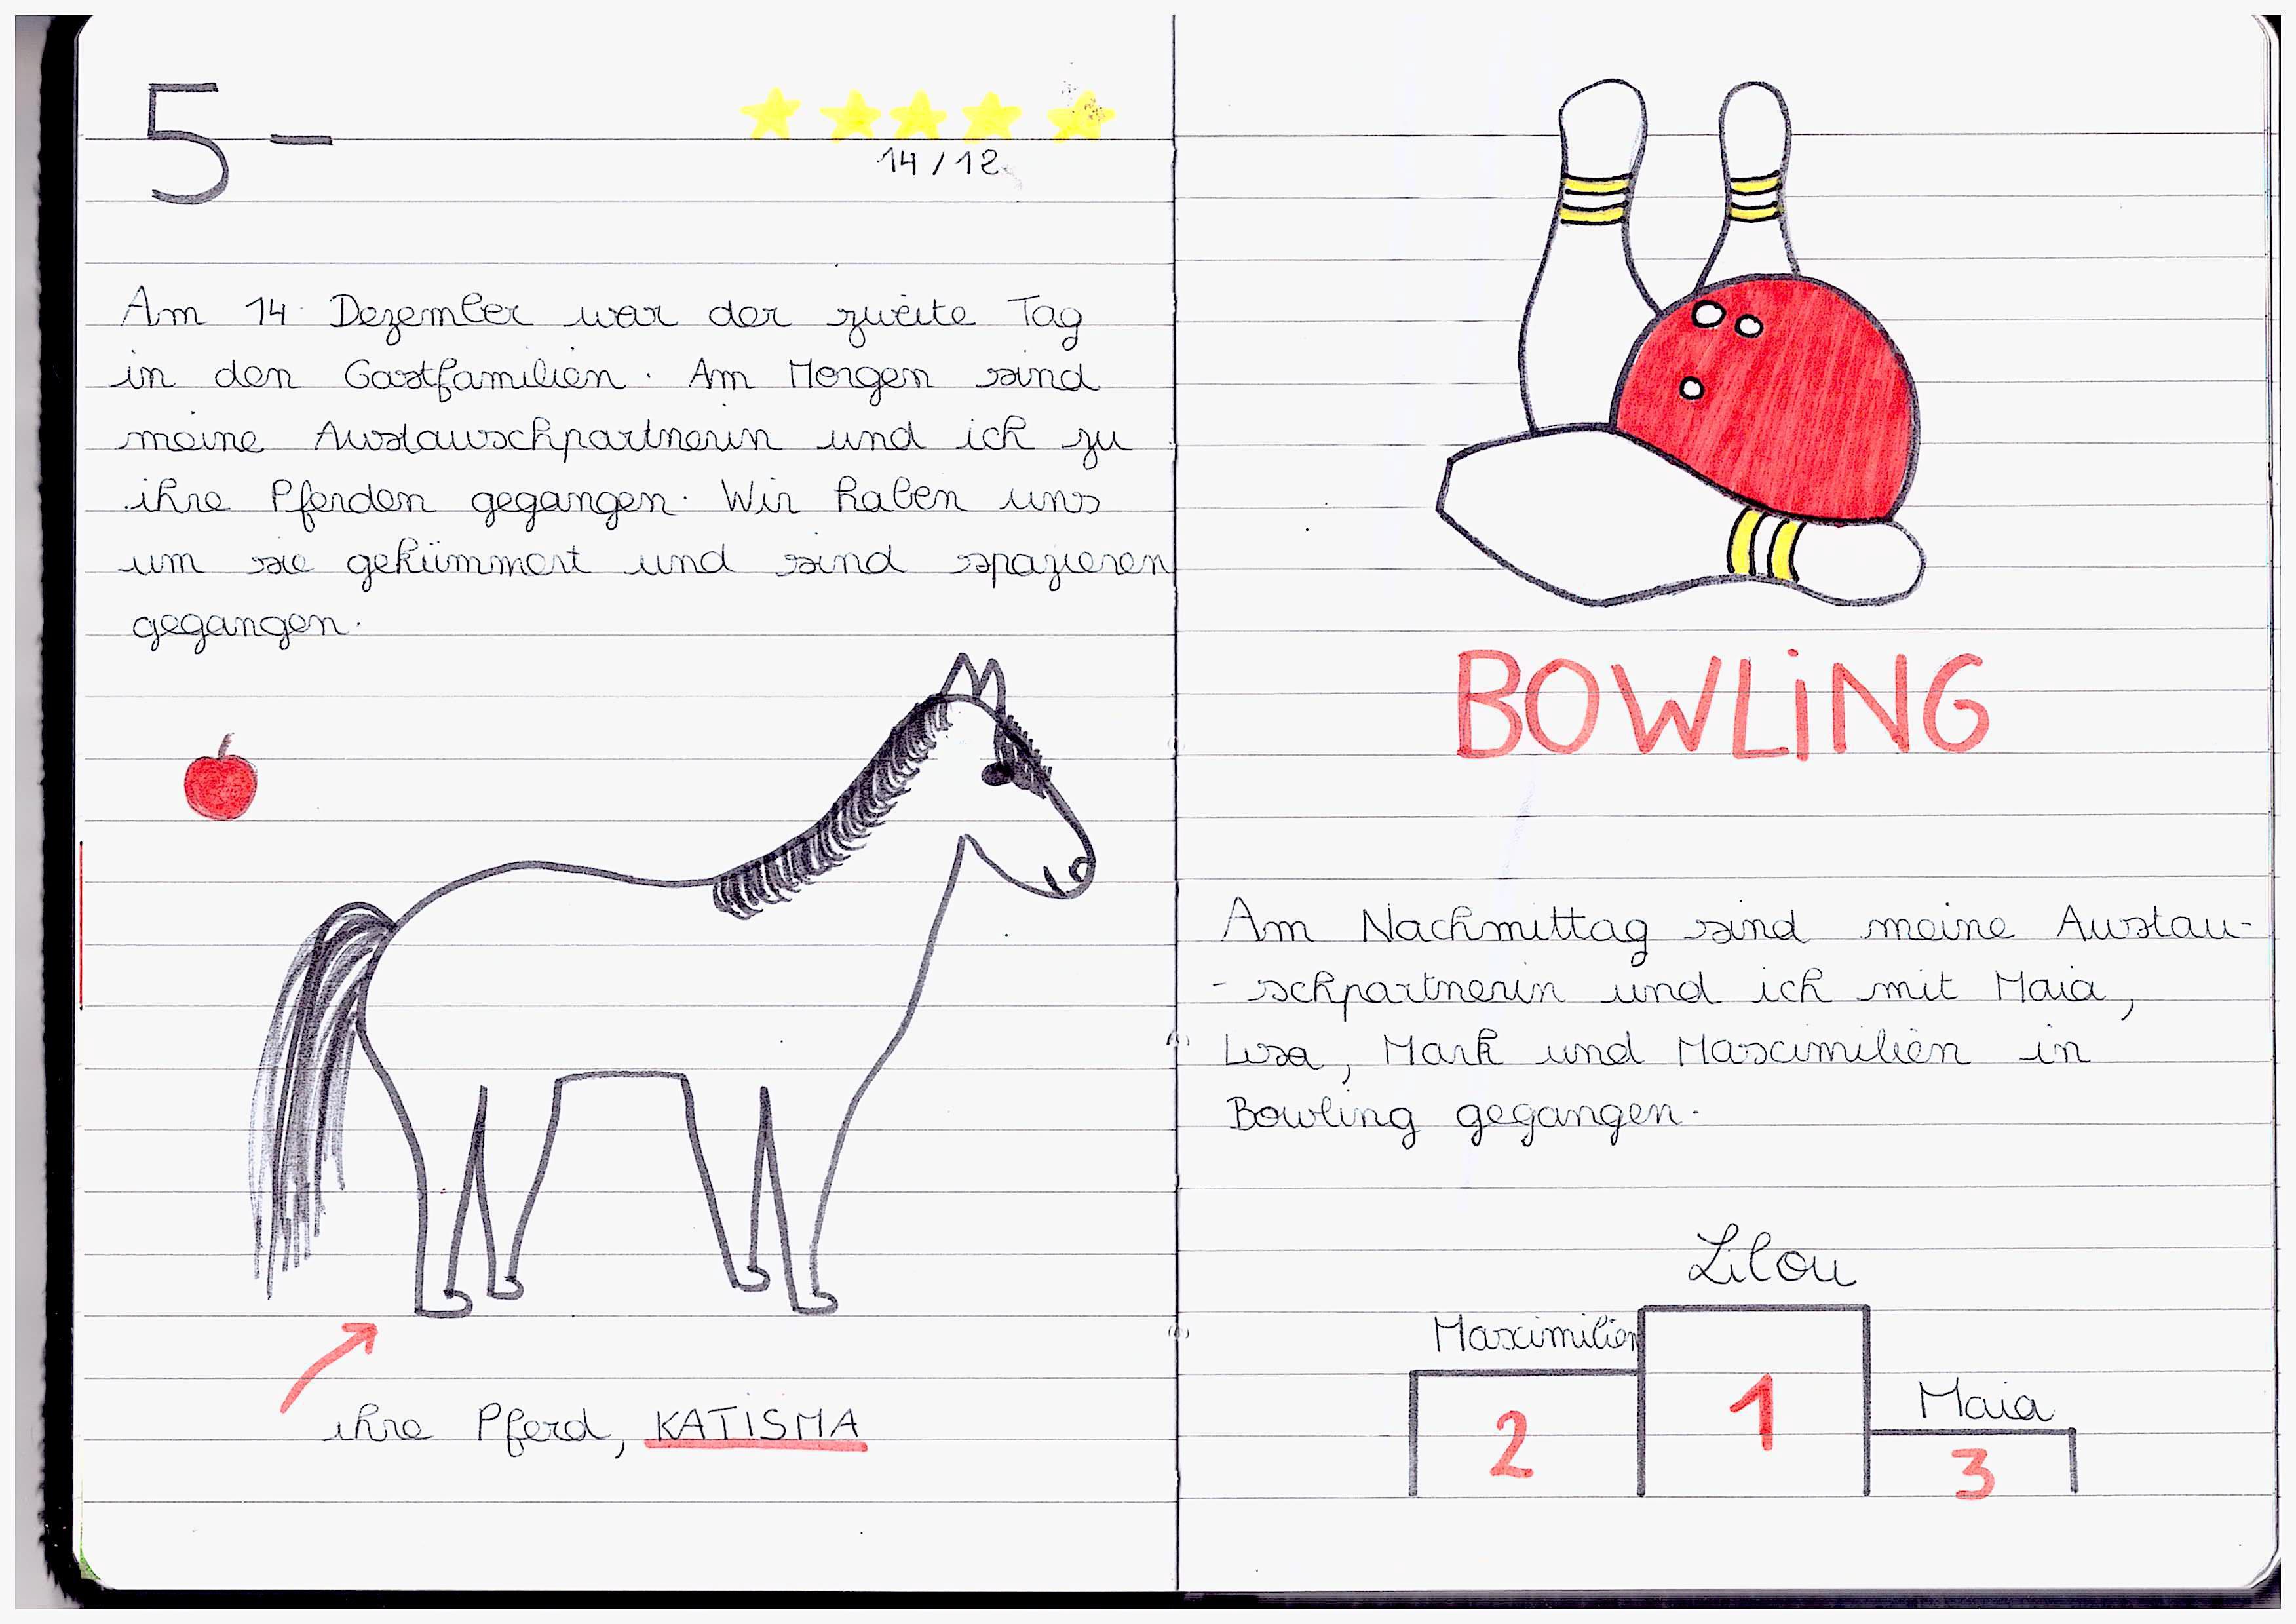 5 -
14/12
Am 14. Dezember war der zweite Tag
in den Gastfamilien. Am Morgen sind
meine Austauschpartnerin und ich zu
ihre Pferden gegangen. Wir haben uns
um sie gekümmert und sind spazieren
gegangen.
ihre Pferd, KATISMA
BOWLiNG
Am Nachmittag sind meine Austau-
- schpartnerin und ich mit Maia,
Lisa, Mark und Maximilien in
Bowling gegangen.
Lilou
Maximilien
Maia
1
2
3